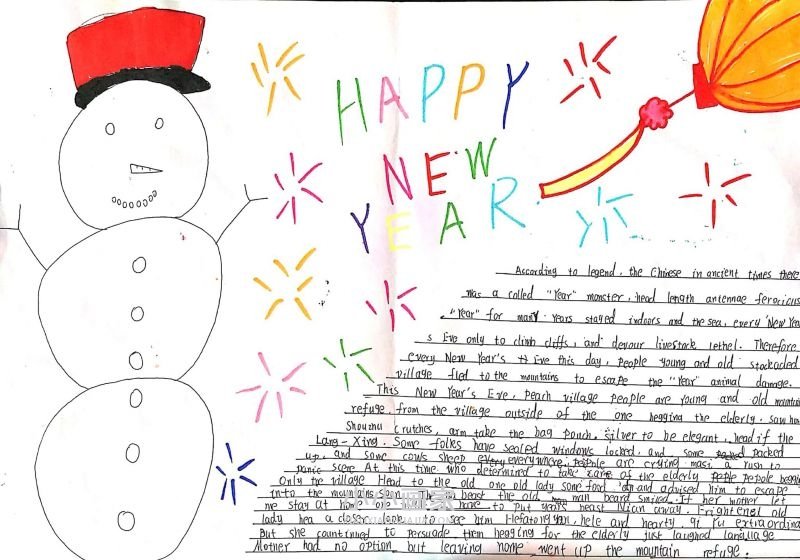 HAPPY
NEW
YEAR
According to legend, the Chinese in ancient times there
was a called "Year" monster, head length antennae ferocious
"Year" for many years stayed indoors and the sea, every New Yea
s Eve only to climb cliffs, and devour livestock lethel. Therefore
every New Year's Eve this day, people young and old stockaded
village fled to the mountains to escape the "Year" animal damage.
This New Year's Eve, Peach village people are young and old mountain
refuge, from the village outside of the one hegging the elderly. saw him
Shouzhu crutches, arm take the bag Ponch, silver to be elegant, head if the
Lang-Xing. Some folks have sealed windows locked, and some packed
up, and some cows sheep everywhere, people are crying masi a rush to
panic scene At this time who determined to take care of the elderly people
Only the village Head to the old one old lady some food and advised him to escape
into the mountains beast the old man beard smiled. If her mother let
me stay at home one have to put years beast Nian away. Frightened old
lady hea a closer look to see him hele and hearty, qi fu extraordina
But she countinued to persuade them hegging for the elderly just laughed language
Mother had no option but leaving home, went up the mountain refuge.